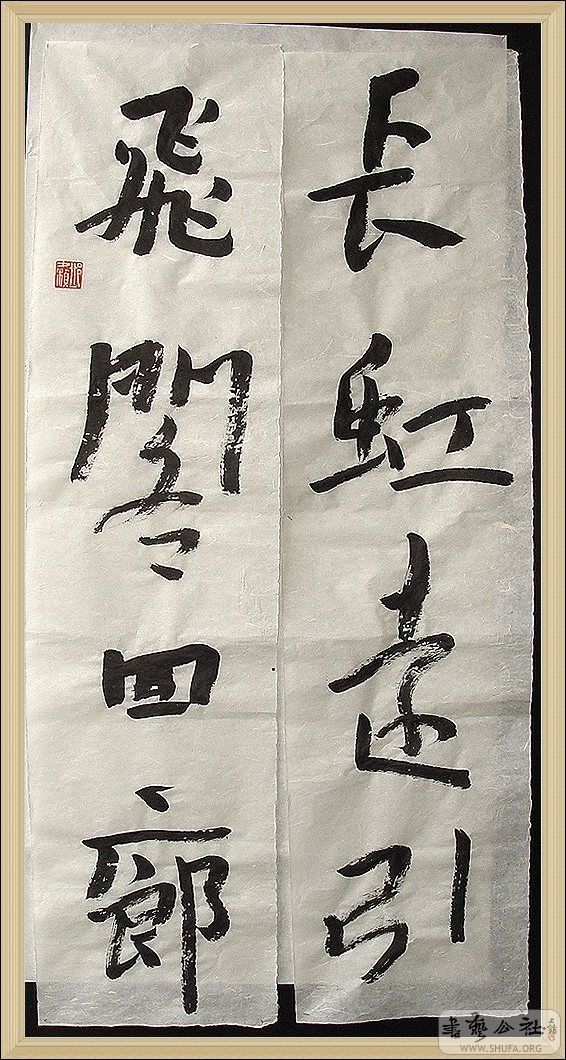 長虹遠引
飛閣回廊
書藝公社
WWW.SHUFA.ORG